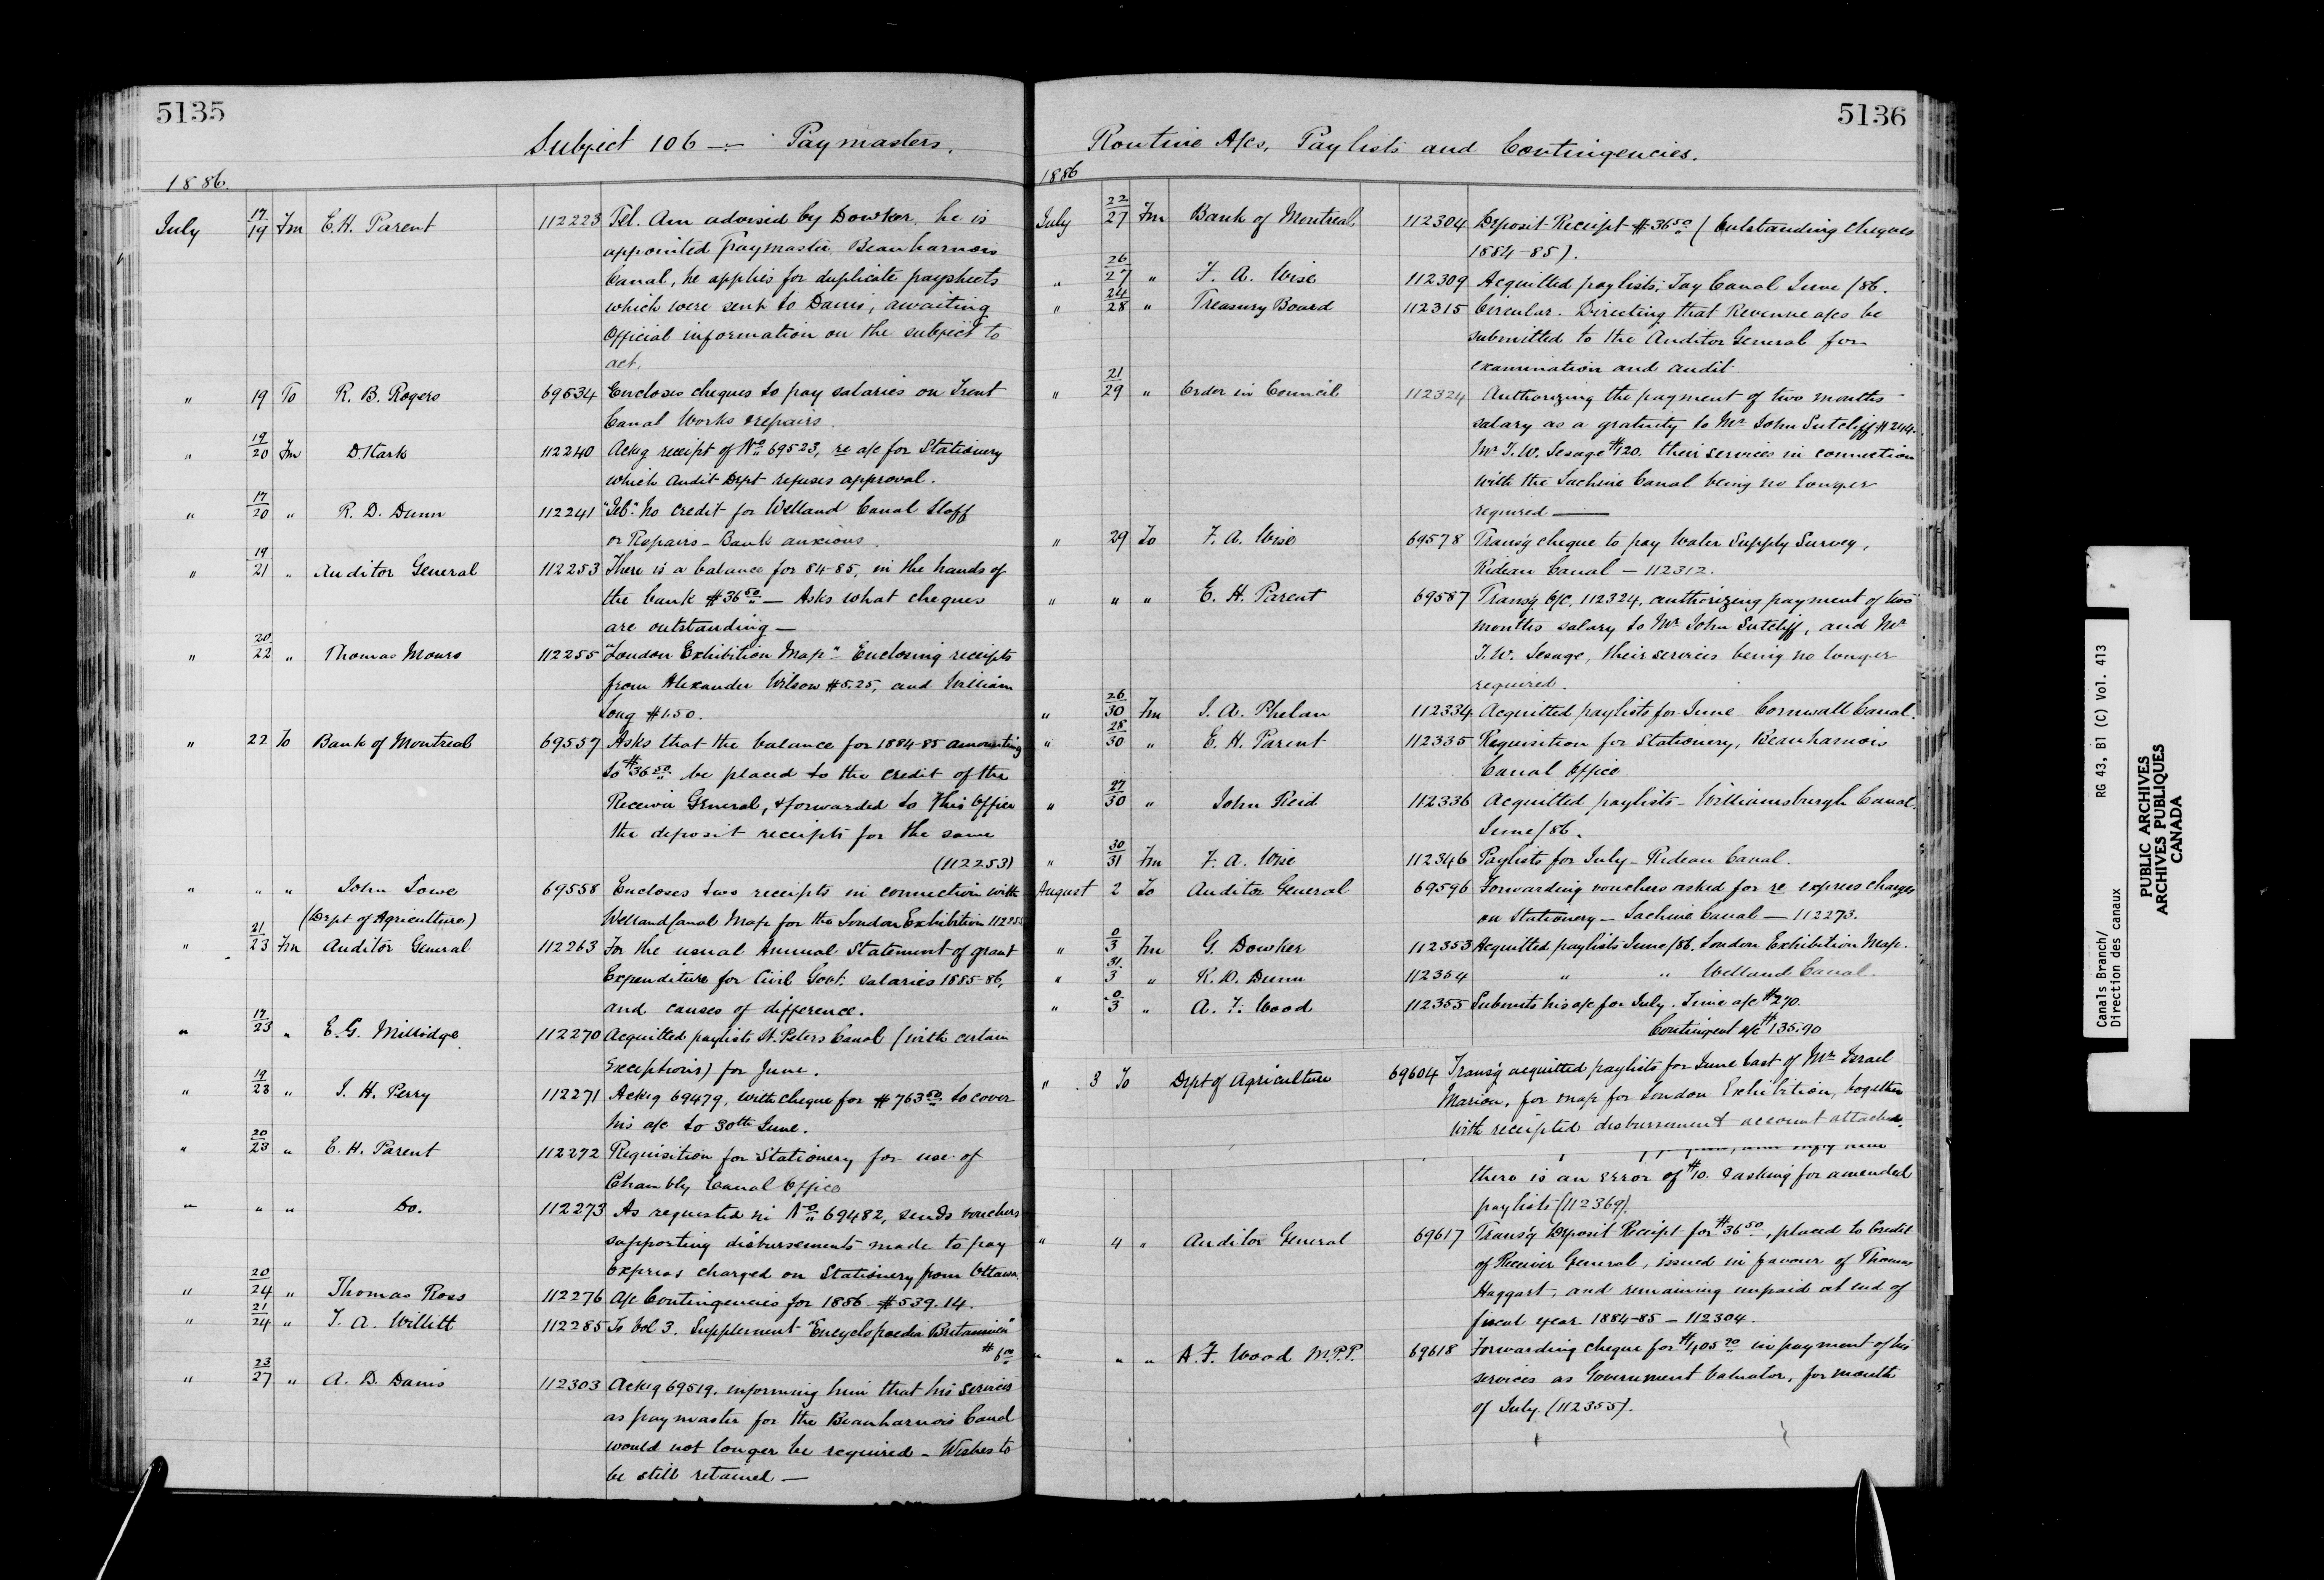 5135
Subject 106 — Paymasters.
1886.
July 17/19 Fm E. H. Parent 112223 Tel. Am advised by Dowker he is
appointed Paymaster Beauharnois
Canal, he applies for duplicate paysheets
which were sent to Danis, awaiting
Official information on the subject to
act.
" 19 To R. B. Rogers 69534 Encloses cheques to pay salaries on Trent
Canal Works & repairs.
" 19/20 Fm D. Stark 112240 Ackg receipt of No 69523, re a/c for Stationery
which Audit Dept refuses approval.
" 17/20 " R. D. Dunn 112241 "Tel". No credit for Welland Canal Staff
or Repairs - Bank anxious.
" 19/21 " Auditor General 112253 There is a balance for 84-85, in the hands of
the bank $36.50 — Asks what cheques
are outstanding —
" 20/22 " Thomas Monro 112255 "London Exhibition Map" Enclosing receipts
from Alexander Wilson $5.25, and William
Long $1.50.
" 22 To Bank of Montreal 69557 Asks that the balance for 1884-85 amounting
to $36.50 be placed to the credit of the
Receiver General, & forwarded to this Office
the deposit receipts for the same
(112253)
" " " John Lowe 69558 Encloses two receipts in connection with
(Dept of Agriculture) Welland Canal Map for the London Exhibition 112255
" 21/23 Fm Auditor General 112263 For the usual Annual Statement of grant
Expenditure for Civil Govt. salaries 1885-86,
and causes of difference.
" 17/23 " E. G. Millidge 112270 Acquitted paylists St. Peters Canal (with certain
Exceptions) for June.
" 19/23 " J. H. Perry 112271 Ackg 69479, with cheque for $763.50 to cover
his a/c to 30th June.
" 20/23 " E. H. Parent 112272 Requisition for Stationery for use of
Chambly Canal Office
" " " Do. 112273 As requested in No 69482, sends vouchers
supporting disbursements made to pay
express charged on Stationery from Ottawa.
" 20/24 " Thomas Ross 112276 A/c Contingencies for 1886 $539.14.
" 21/24 " T. A. Willett 112285 To Vol 3. Supplement "Encyclopaedia Britannica"
$6.00
" 23/27 " A. D. Danis 112303 Ackg 69519. informing him that his services
as paymaster for the Beauharnois Canal
would not longer be required - Wishes to
be still retained —
5136
Routine A/cs, Paylists and Contingencies.
1886
July 22/27 Fm Bank of Montreal 112304 Deposit Receipt $36.50 (Outstanding cheques
1884-85).
" 26/27 " F. A. Wise 112309 Acquitted paylists, Tay Canal June/86.
" 24/28 " Treasury Board 112315 Circular. Directing that Revenue a/cs be
submitted to the Auditor General for
examination and audit.
" 21/29 " Order in Council 112324 Authorizing the payment of two months
salary as a gratuity to Mr John Sutcliff $244.
Mr T. W. Lesage $120. their services in connection
with the Lachine Canal being no longer
required —
" 29 To F. A. Wise 69578 Transg cheque to pay Water Supply Survey,
Rideau Canal — 112312.
" " " E. H. Parent 69587 Transg O/C. 112324, authorizing payment of two
months salary to Mr John Sutcliff, and Mr
T. W. Lesage, their services being no longer
required.
" 26/30 Fm J. A. Phelan 112334 Acquitted paylists for June Cornwall Canal.
" 28/30 " E. H. Parent 112335 Requisition for Stationery, Beauharnois
Canal Office
" 27/30 " John Reid 112336 Acquitted paylists - Williamsburgh Canal.
June/86.
" 30/31 Fm F. A. Wise 112346 Paylists for July - Rideau Canal.
August 2 To Auditor General 69596 Forwarding vouchers asked for re express charges
on Stationery — Lachine Canal — 112273.
" 0/3 Fm G. Dowker 112353 Acquitted paylists June/86. London Exhibition Map.
" 31/3 " R. D. Dunn 112354 " " Welland Canal.
" 0/3 " A. F. Wood 112355 Submits his a/c for July. Time a/c $270.
Contingent a/c $135.90
" 3 To Dept of Agriculture 69604 Transg acquitted paylists for June last of Mr Israel
Marion, for map for London Exhibition, together
with receipted disbursement account attached.
there is an error of $10. & asking for amended
paylists (112369).
" 4 " Auditor General 69617 Transg Deposit Receipt for $36.50, placed to Credit
of Receiver General, issued in favour of Thomas
Haggart, and remaining unpaid at end of
fiscal year 1884-85 — 112304.
" " " A. F. Wood M.P.P. 69618 Forwarding cheque for $405.90 in payment of his
services as Government Valuator, for month
of July. (112355).
Canals Branch/ RG 43, B1 (C) Vol. 413
Direction des canaux
PUBLIC ARCHIVES
ARCHIVES PUBLIQUES
CANADA